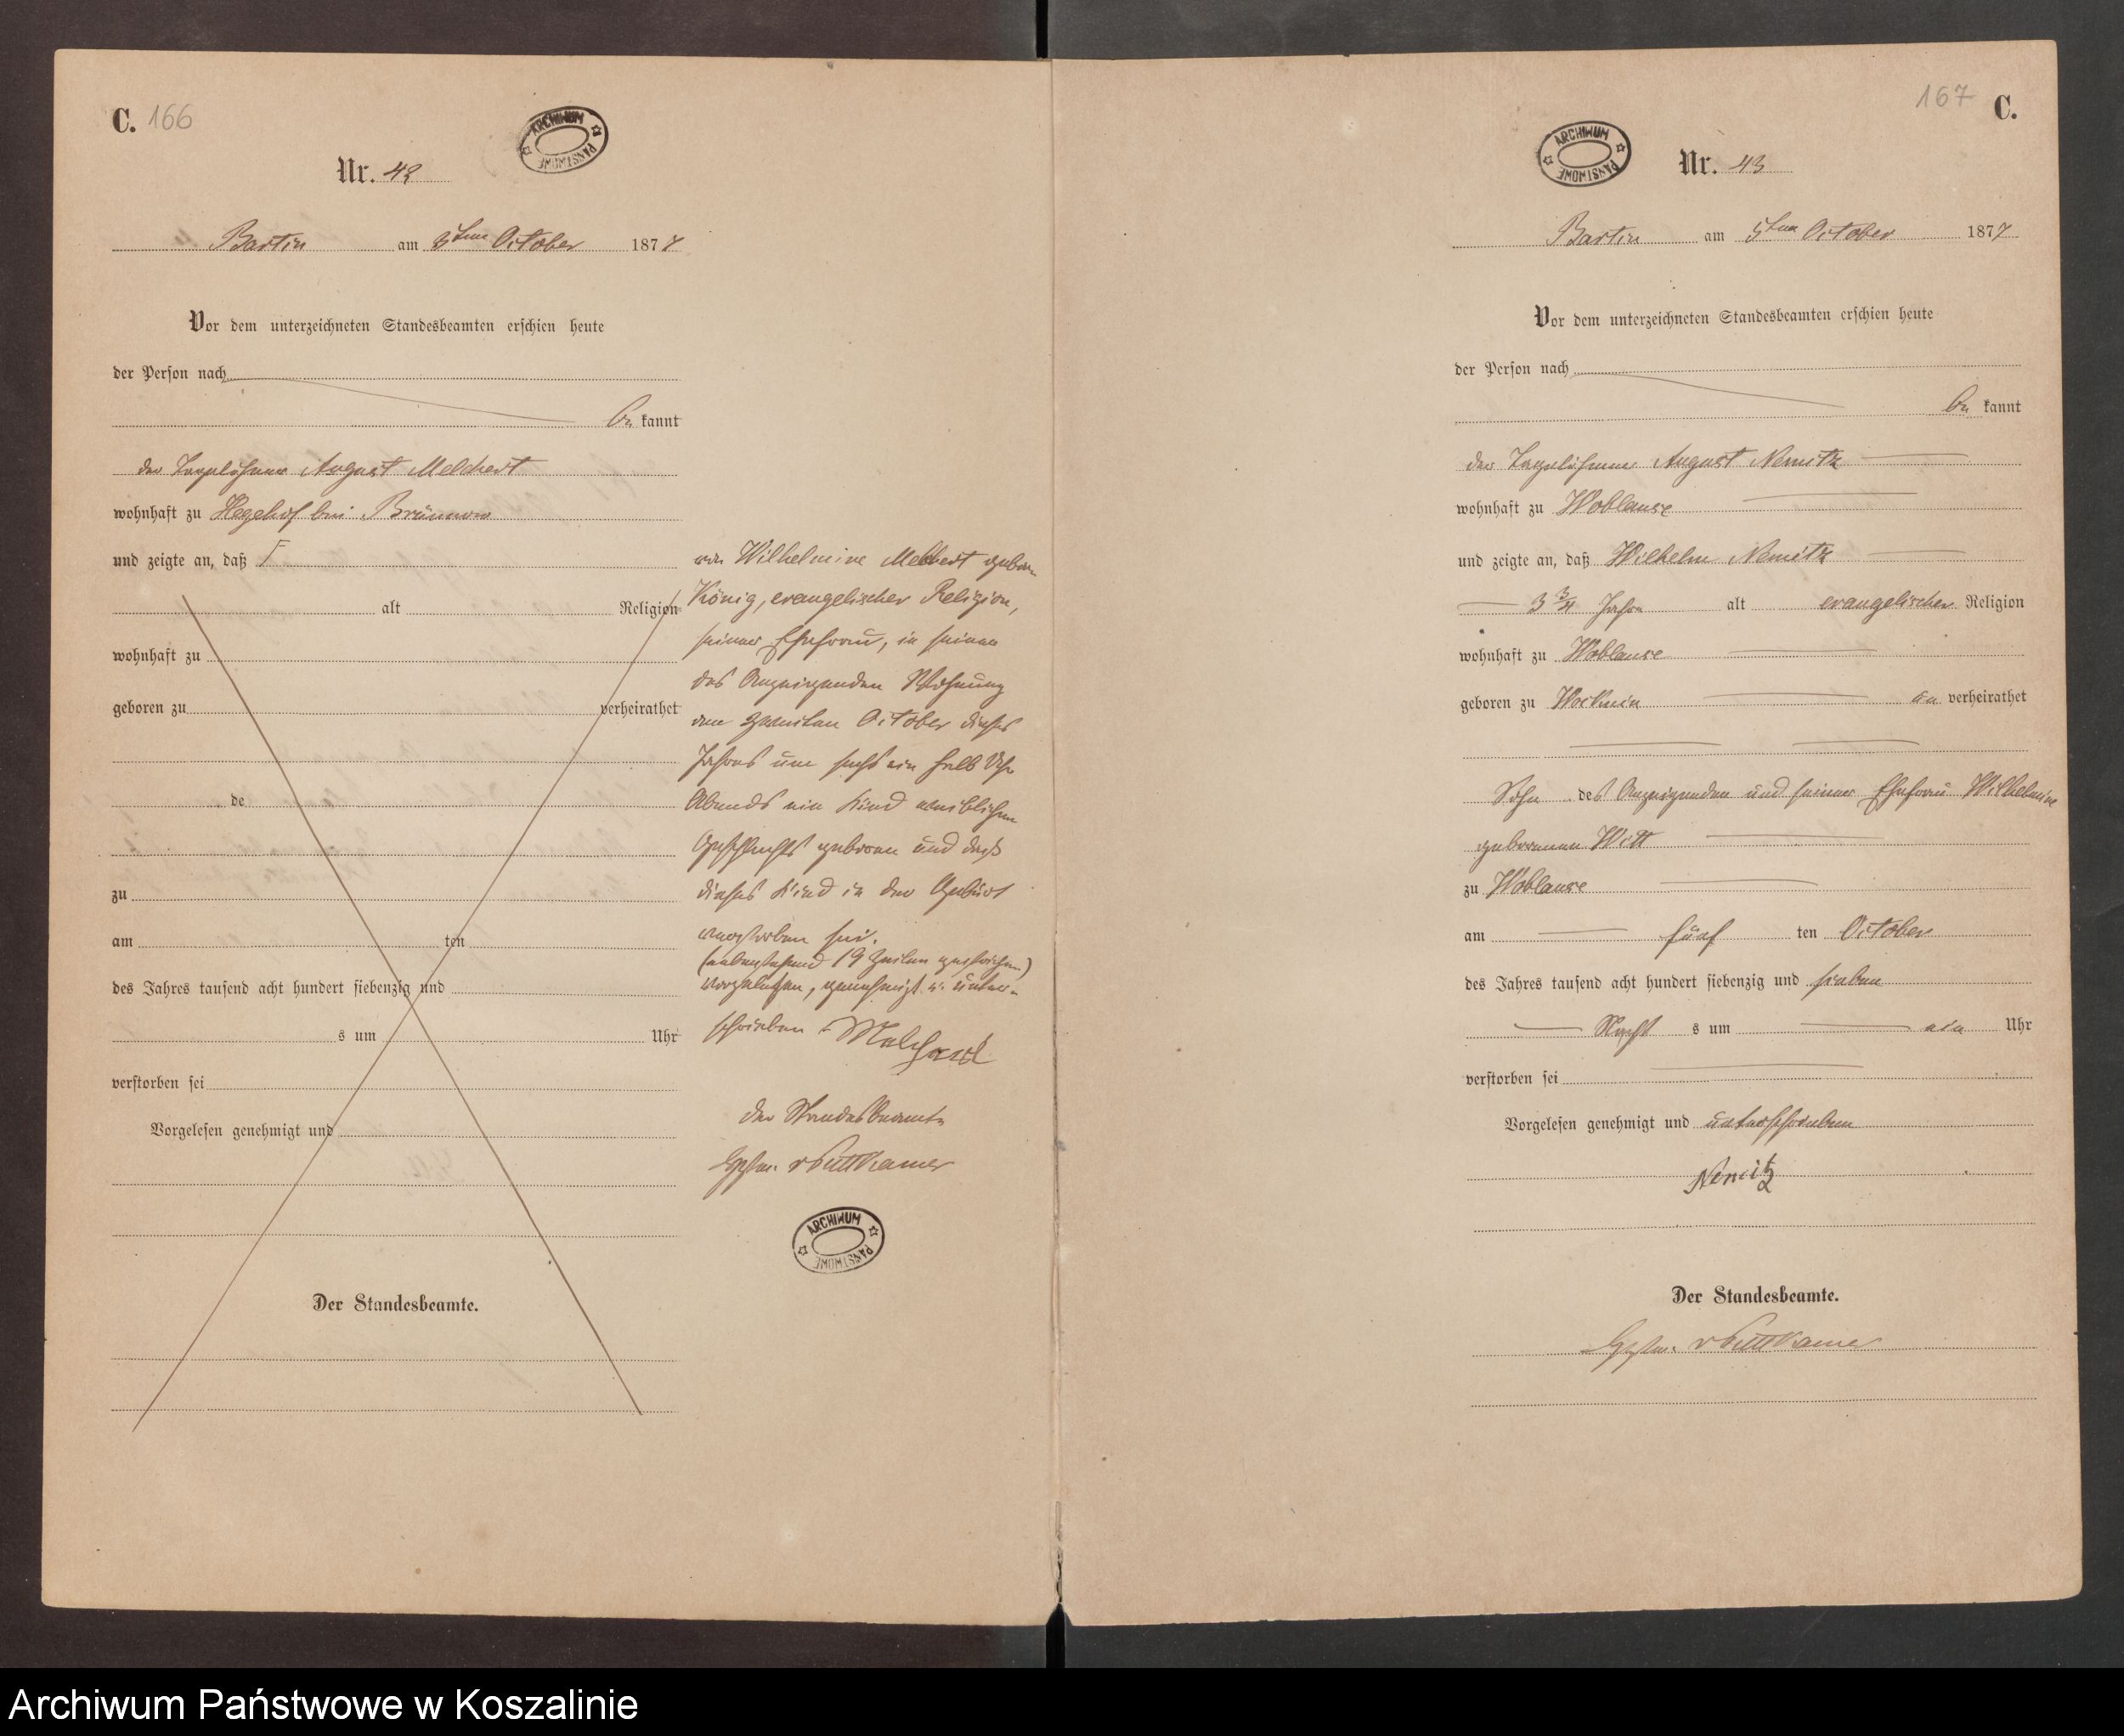 C. 166
ARCHIWUM PAŃSTWOWE
Nr. 42
Bartin am 3ten October 1877
Vor dem unterzeichneten Standesbeamten erschien heute
der Person nach
be kannt
der Tagelöhner August Melchert
wohnhaft zu Hegehof bei Brünnow
und zeigte an, daß
alt Religion
wohnhaft zu
geboren zu verheirathet
de
zu
am ten
des Jahres tausend acht hundert siebenzig und
s um Uhr
verstorben sei
Vorgelesen genehmigt und
Der Standesbeamte.
von Wilhelmine Melchert geborn
König, evangelischer Religion,
seiner Ehefrau, in seiner
des Anzeigenden Wohnung
am zweiten October dieses
Jahres um sechs ein halb Uhr
Abends ein Kind weiblichen
Geschlechts geboren und daß
dieses Kind in der Geburt
verstorben sei.
(nebenstehend 19 Zeilen gestrichen)
vorgelesen, genehmigt u. unter-
schrieben Melchert
Der Standesbeamte
v Puttkamer
ARCHIWUM PAŃSTWOWE
167 C.
ARCHIWUM PAŃSTWOWE
Nr. 43
Bartin am 5ten October 1877
Vor dem unterzeichneten Standesbeamten erschien heute
der Person nach
be kannt
der Tagelöhner August Nemitz
wohnhaft zu Woblanse
und zeigte an, daß Wilhelm Nemitz
3 3/4 Jahre alt evangelischer Religion
wohnhaft zu Woblanse
geboren zu verheirathet
Sohn des Anzeigenden und seiner Ehefrau Wilhelmine
geborenen Witt
zu Woblanse
am fünf ten October
des Jahres tausend acht hundert siebenzig und sieben
Nacht s um ein Uhr
verstorben sei
Vorgelesen genehmigt und unterschrieben
Nemitz
Der Standesbeamte.
v Puttkamer
Archiwum Państwowe w Koszalinie